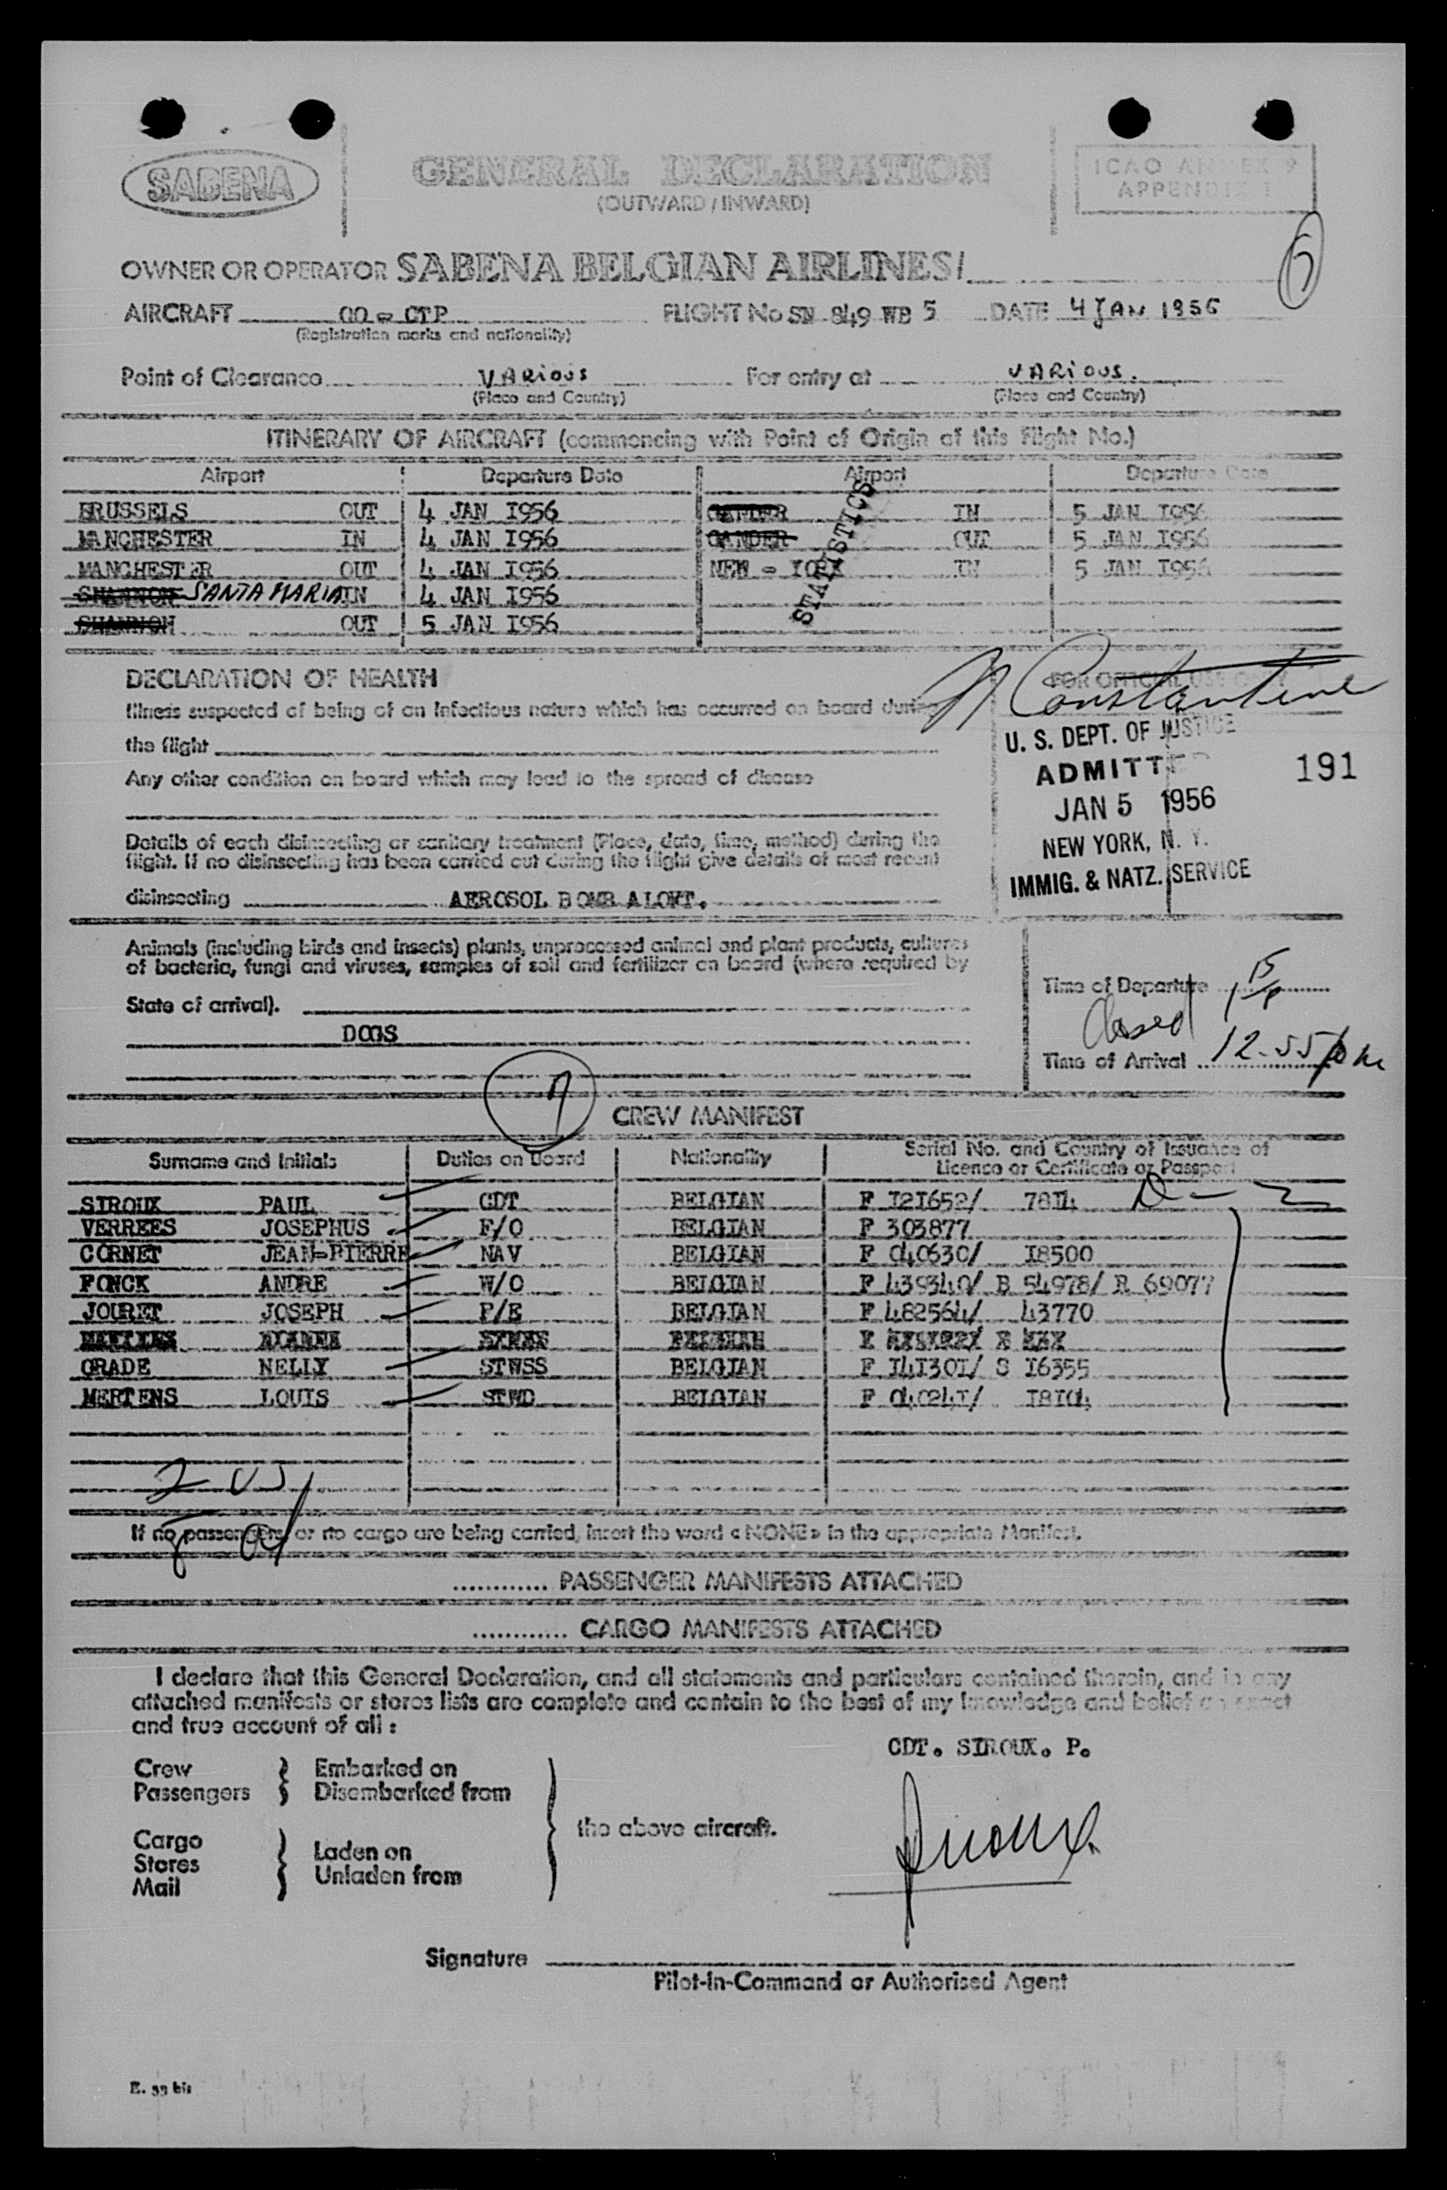 SABENA
GENERAL DECLARATION
(OUTWARD / INWARD)
ICAO ANNEX 9
APPENDIX 1
OWNER OR OPERATOR SABENA BELGIAN AIRLINES/
AIRCRAFT OO - CTP FLIGHT No SN 849 WB 5 DATE 4 JAN 1956
(Registration marks and nationality)
Point of Clearance VARIOUS For entry at VARIOUS.
(Place and Country) (Place and Country)
ITINERARY OF AIRCRAFT (commencing with Point of Origin of this Flight No.)
Airport Departure Date Airport Departure Date
BRUSSELS OUT 4 JAN I956 GANDER IN 5 JAN I956
MANCHESTER IN 4 JAN I956 GANDER OUT 5 JAN I956
MANCHESTER OUT 4 JAN I956 NEW - YORK IN 5 JAN I956
SHANNON SANTA MARIA IN 4 JAN I956
SHANNON OUT 5 JAN I956
STATISTICS
DECLARATION OF HEALTH
FOR OFFICIAL USE ONLY
N Constantine
Illness suspected of being of an infectious nature which has occurred on board during
the flight
U. S. DEPT. OF JUSTICE
ADMITTED
191
JAN 5 1956
NEW YORK, N. Y.
IMMIG. & NATZ. SERVICE
Any other condition on board which may lead to the spread of disease
Details of each disinsecting or sanitary treatment (Place, date, time, method) during the
flight. If no disinsecting has been carried out during the flight give details of most recent
disinsecting AEROSOL BOMB ALOFT.
Animals (including birds and insects) plants, unprocessed animal and plant products, cultures
of bacteria, fungi and viruses, samples of soil and fertilizer on board (where required by
State of arrival).
DOGS
Time of Departure
Closed
Time of Arrival 12.55
CREW MANIFEST
Surname and Initials Duties on Board Nationality Serial No. and Country of Issuance of
Licence or Certificate or Passport
SIROUX PAUL CDT BELGIAN F I2I652/ 78I4
VERREES JOSEPHUS F/O BELGIAN F 303877
CORNET JEAN-PIERRE NAV BELGIAN F 040630/ I8500
FONCK ANDRE W/O BELGIAN F 439340/ B 54978/ R 69077
JOURET JOSEPH F/E BELGIAN F 482564/ 43770
GRADE NELLY STWSS BELGIAN F I4I30I/ S I6355
MERTENS LOUIS STWD BELGIAN F 04024I/ I8I04
2 US
If no passengers or no cargo are being carried, insert the word « NONE » in the appropriate Manifest.
............ PASSENGER MANIFESTS ATTACHED
............ CARGO MANIFESTS ATTACHED
I declare that this General Declaration, and all statements and particulars contained therein, and in any
attached manifests or stores lists are complete and contain to the best of my knowledge and belief an exact
and true account of all :
CDT. SIROUX. P.
Crew Embarked on
Passengers Disembarked from
the above aircraft.
Cargo
Stores Laden on
Mail Unladen from
Siroux.
Signature
Pilot-in-Command or Authorised Agent
E. 33 bis